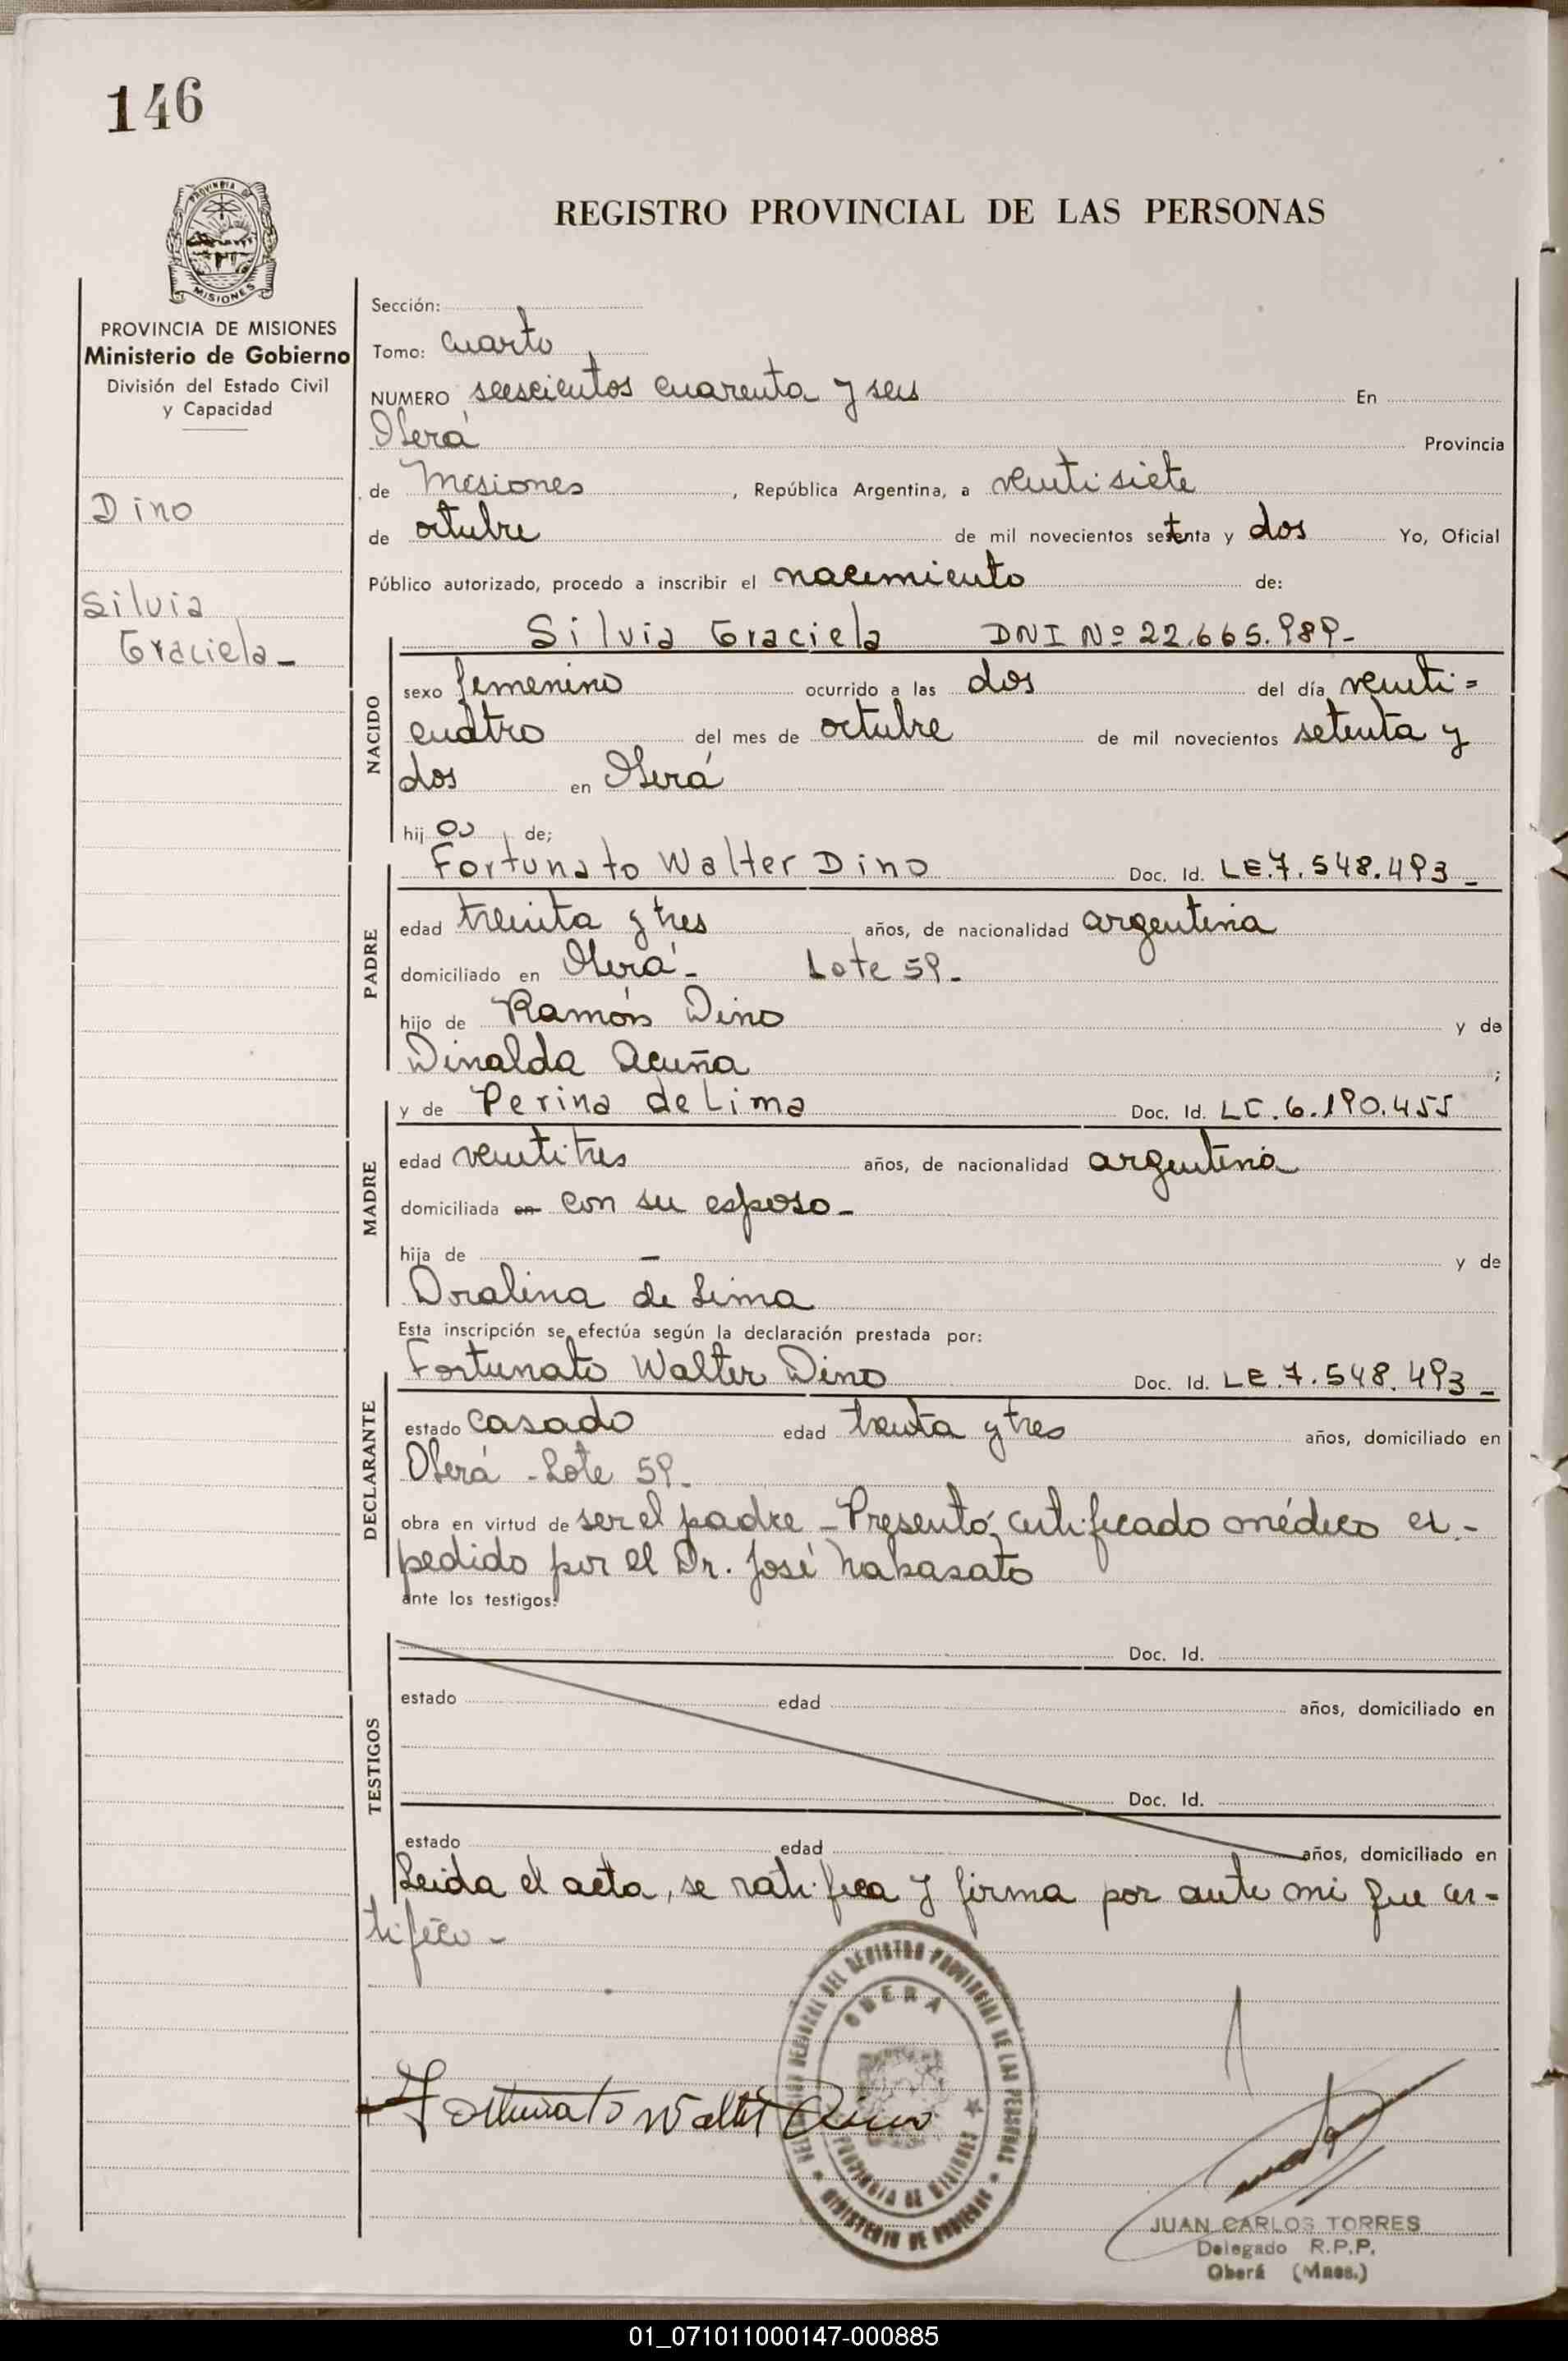 146
PROVINCIA DE
MISIONES
REGISTRO PROVINCIAL DE LAS PERSONAS
PROVINCIA DE MISIONES
Ministerio de Gobierno
División del Estado Civil
y Capacidad
Dino
Silvia
Graciela -
Sección:
Tomo: cuarto
NUMERO seiscientos cuarenta y seis En
Oberá Provincia
de Misiones, República Argentina, a veinti siete
de octubre de mil novecientos setenta y dos Yo, Oficial
Público autorizado, procedo a inscribir el nacimiento de:
NACIDO
Silvia Graciela DNI Nº 22.665.989-
sexo femenino ocurrido a las dos del día veinti=
cuatro del mes de octubre de mil novecientos setenta y
dos en Oberá
hij a de;
PADRE
Fortunato Walter Dino Doc. Id. LE.7.548.493-
edad treinta y tres años, de nacionalidad argentina
domiciliado en Oberá- Lote 59-
hijo de Ramón Dino y de
Dinalda Acuña ;
MADRE
y de Perina de Lima Doc. Id. LC.6.190.455
edad veintitres años, de nacionalidad argentina
domiciliada en con su esposo-
hija de - y de
Doralina de Lima
Esta inscripción se efectúa según la declaración prestada por:
DECLARANTE
Fortunato Walter Dino Doc. Id. LE.7.548.493-
estado casado edad treinta y tres años, domiciliado en
Oberá - Lote 59-
obra en virtud de ser el padre - Presentó certificado médico ex-
pedido por el Dr. José Nakasato
ante los testigos:
TESTIGOS
Doc. Id.
estado edad años, domiciliado en
Doc. Id.
estado edad años, domiciliado en
Leida el acta, se ratifica y firma por ante mi que cer-
tifico -
Fortunato Walter Dino
DELEGACION REGIONAL DEL REGISTRO PROVINCIAL DE LAS PERSONAS
OBERA
PROVINCIA DE MISIONES
MINISTERIO DE GOBIERNO
JUAN CARLOS TORRES
Delegado R.P.P.
Oberá (Mnes.)
01_071011000147-000885